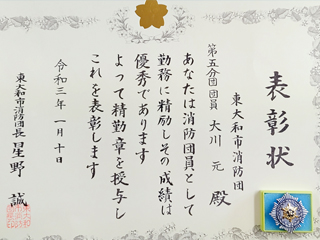 表彰状
東大和市消防団
第五分団団員 大川 元 殿
あなたは消防団員として
勤務に精励しその成績は
優秀であります
よって精勤章を授与し
これを表彰します
令和三年一月十日
東大和市消防団長 星野 誠